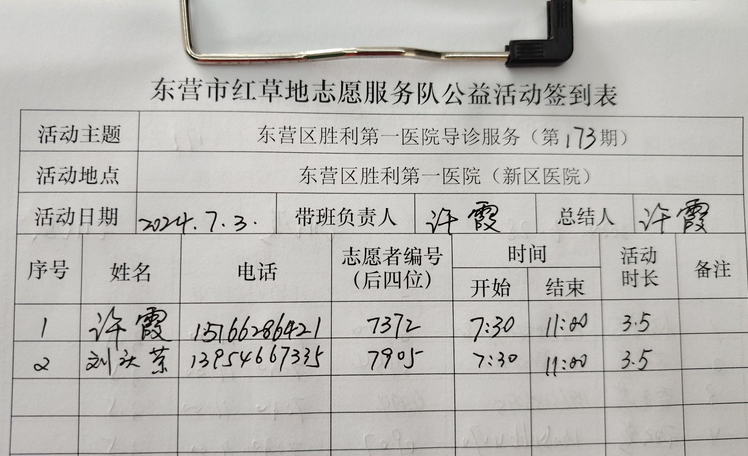 东营市红草地志愿服务队公益活动签到表
活动主题 东营区胜利第一医院导诊服务（第173期）
活动地点 东营区胜利第一医院（新区医院）
活动日期 2024.7.3. 带班负责人 许霞 总结人 许霞
序号 姓名 电话 志愿者编号（后四位） 时间 开始 结束 活动时长 备注
1 许霞 15166286421 7372 7:30 11:00 3.5
2 刘 13954667335 7905 7:30 11:00 3.5